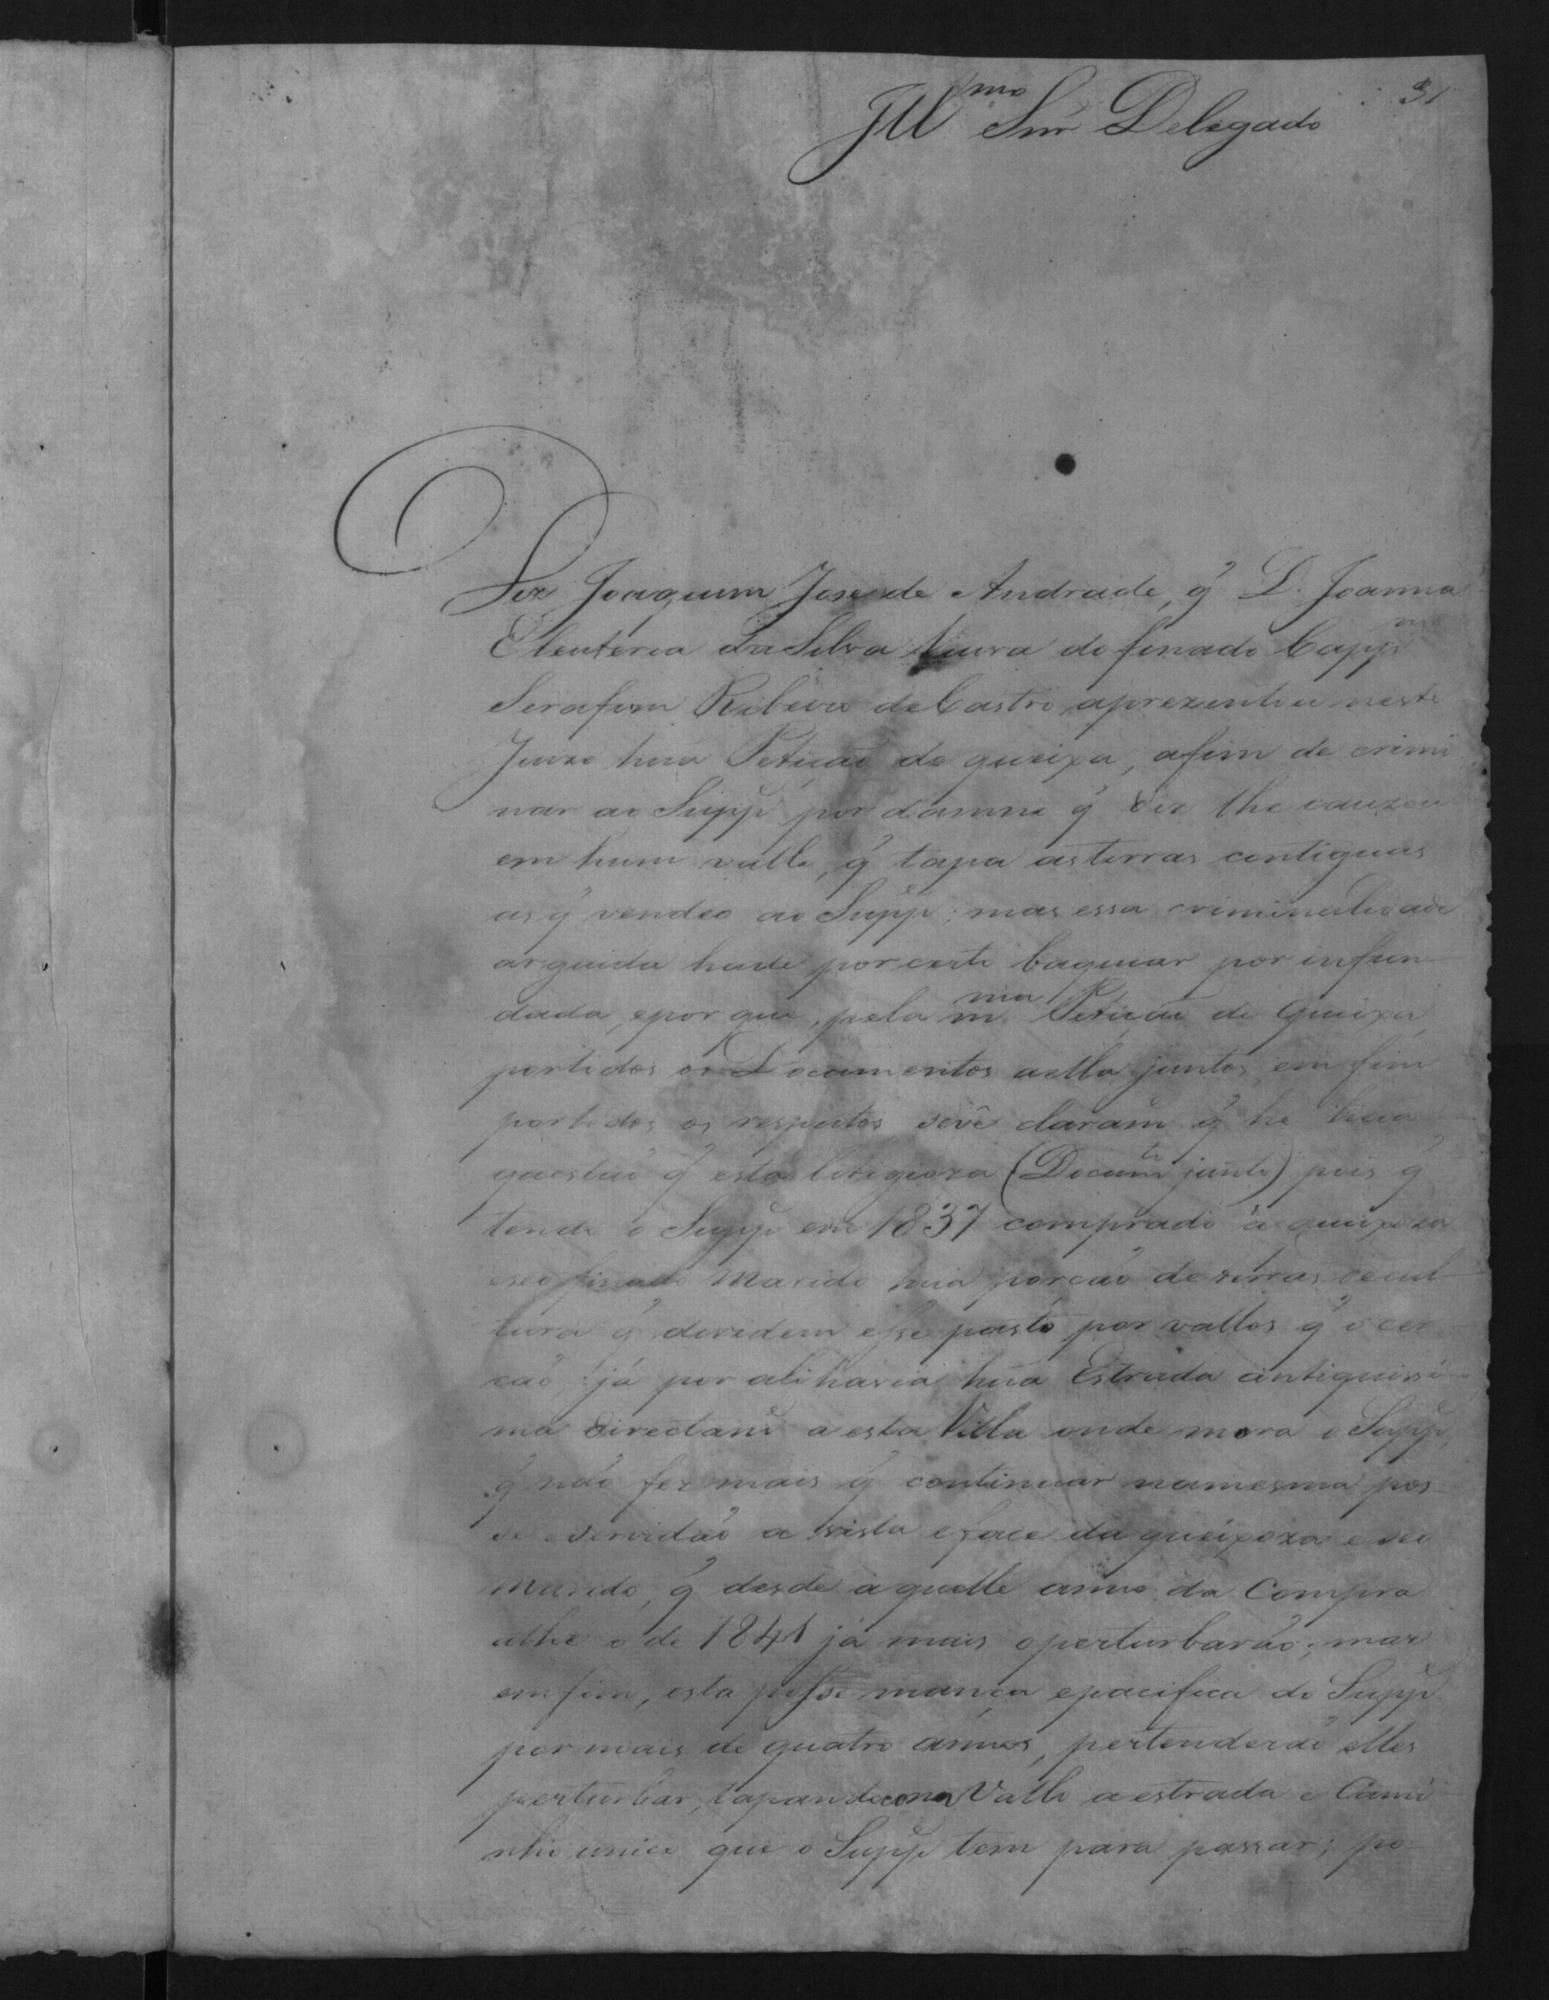 31
Illmo Snr Delegado
Diz Joaquim Jose de Andrade, q̃ D. Joanna
Eleuteria da Silva Viuva do finado Cappm
Serafim Ribeiro de Castro aprezentou neste
Juizo hua Petição de queixa, afim de crimi
nar ao Suppe por damno q̃ diz lhe cauzou
em hum vallo, q̃ tapa as terras contiguas
as q̃ vendeo ao Suppe; mas essa criminalidade
arguida hade por certo baquiar por infun
dada, e por que, pela mma Petição de queixa,
por todos os Documentos a ella juntos, em fim
por todos os respeitos se vê claramte q̃ he hua
questão q̃ esta letigioza (Documto junto) pois q̃
tendo o Suppe em 1837 comprado á queixoza
e seo finado Marido hua porção de terras de cul
tura q̃ devidem esse pasto por vallos q̃ o cer
cão, já por ali havia hua Estrada antiquissi
ma directamte a esta Villa onde mora o Suppe,
q̃ não fez mais q̃ continuar na mesma pos
se e servidão a vista e face da queixoza e seo
Marido, q̃ desde aquelle anno da Compra
athe o de 1841 já mais o perturbarão; mas
em fim, esta posse mança e pacifica do Suppe
por mais de quatro annos, pertenderão elles
perturbar, tapando com Vallo a estrada e Cami
nho unico que o Suppe tem para passar; po